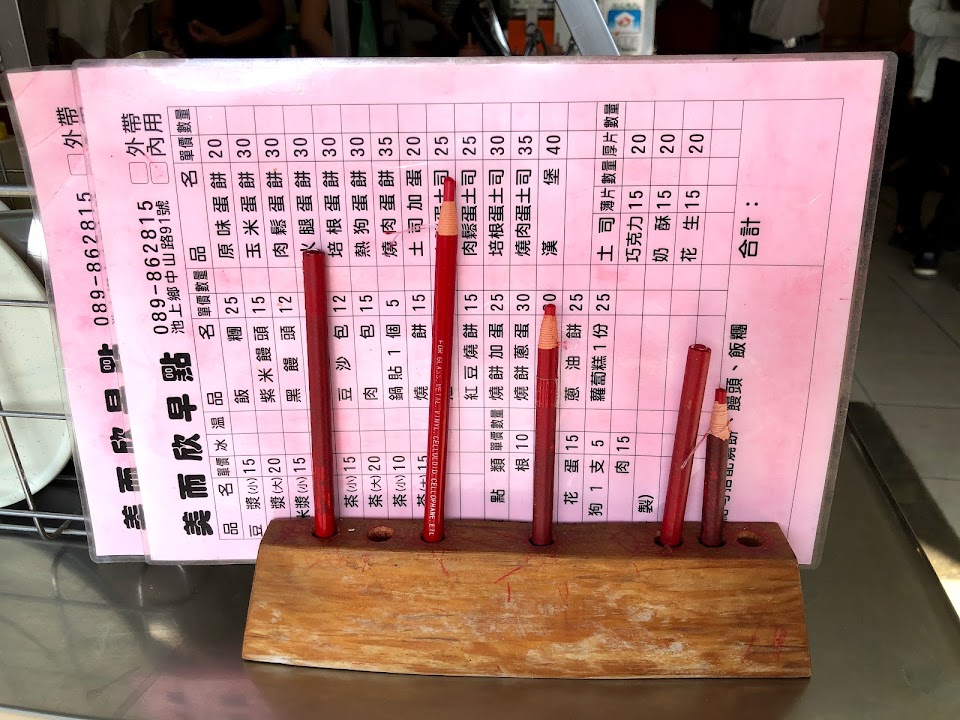 美而欣早點 089-862815 外帶
美而欣早點 089-862815 外帶
池上鄉中山路91號 內用
品名 單價 冰 溫 品名 單價 數量 品名 單價 數量
豆漿(小) 15 飯糰 25 原味蛋餅 20
漿(大) 20 紫米饅頭 15 玉米蛋餅 30
米漿(小) 15 黑饅頭 12 肉鬆蛋餅 30
火腿蛋餅 30
茶(小) 15 豆沙包 12 培根蛋餅 30
茶(大) 20 肉包 15 熱狗蛋餅 30
茶(小) 10 鍋貼1個 5 燒肉蛋餅 35
茶(大) 15 燒餅 15 土司加蛋 20
蛋土司 25
紅豆燒餅 15 肉鬆蛋土司 25
點類 單價 數量 燒餅加蛋 25 培根蛋土司 30
根 10 燒餅蔥蛋 30 燒肉蛋土司 35
漢堡 40
花蛋 15 蔥油餅 25
狗1支 5 蘿蔔糕1份 25 土司 薄片 數量 厚片 數量
肉 15 巧克力 15 20
製 奶酥 15 20
花生 15 20
合計：
、饅頭、飯糰
FOR GLASS, METAL, VINYL, CELLULOID, CELLOPHANE, ETC